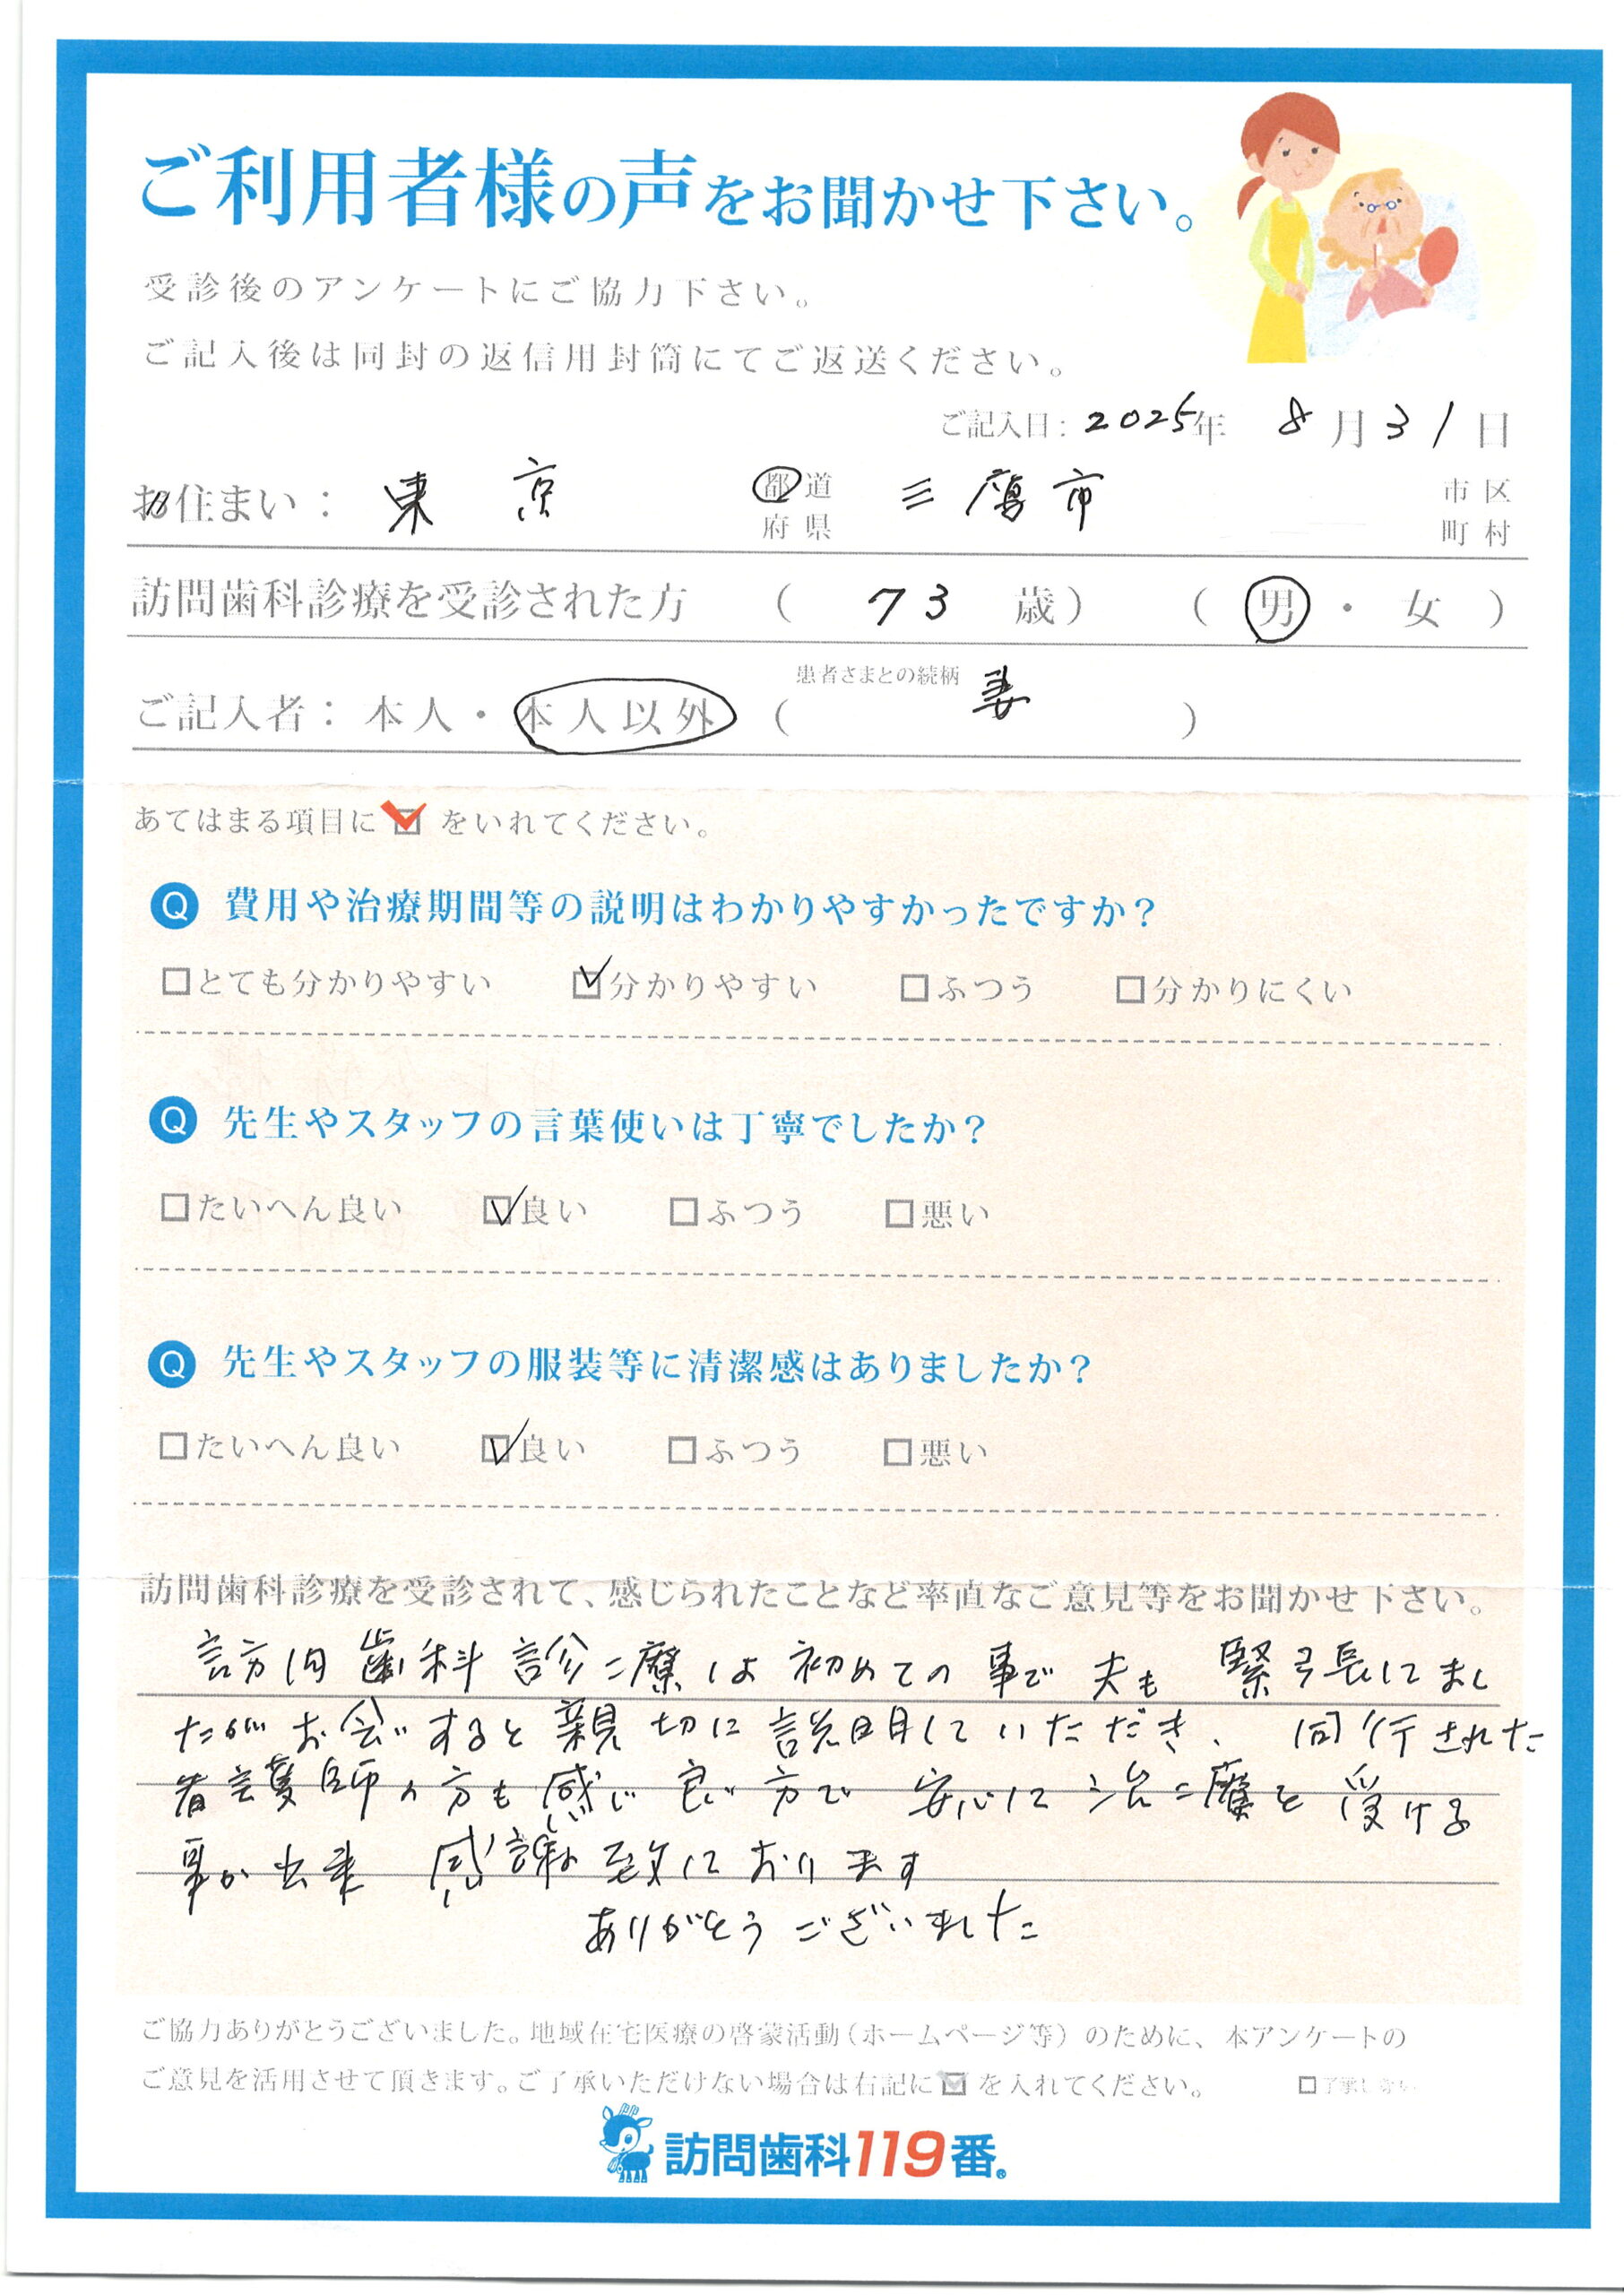 ご利用者様の声をお聞かせ下さい。
受診後のアンケートにご協力下さい。
ご記入後は同封の返信用封筒にてご返送ください。
ご記入日：2025年 8月31日
お住まい： 東京 都道府県 三鷹市 市区町村
訪問歯科診療を受診された方 （ 73 歳） （ 男 ・ 女 ）
ご記入者： 本人・本人以外 （ 患者さまとの続柄 妻 ）
あてはまる項目に☑をいれてください。
Q 費用や治療期間等の説明はわかりやすかったですか？
□とても分かりやすい ☑分かりやすい □ふつう □分かりにくい
Q 先生やスタッフの言葉使いは丁寧でしたか？
□たいへん良い ☑良い □ふつう □悪い
Q 先生やスタッフの服装等に清潔感はありましたか？
□たいへん良い ☑良い □ふつう □悪い
訪問歯科診療を受診されて、感じられたことなど率直なご意見等をお聞かせ下さい。
訪問歯科診療は初めての事で夫も 緊張してまし
たがお会いすると親切に説明していただき、同行された
看護師の方も感じ良い方で 安心して治療を受ける
事が出来 感謝致しております
ありがとうございました
ご協力ありがとうございました。地域在宅医療の啓蒙活動（ホームページ等）のために、本アンケートの
ご意見を活用させて頂きます。ご了承いただけない場合は右記に☑を入れてください。 □了承しない
訪問歯科119番®